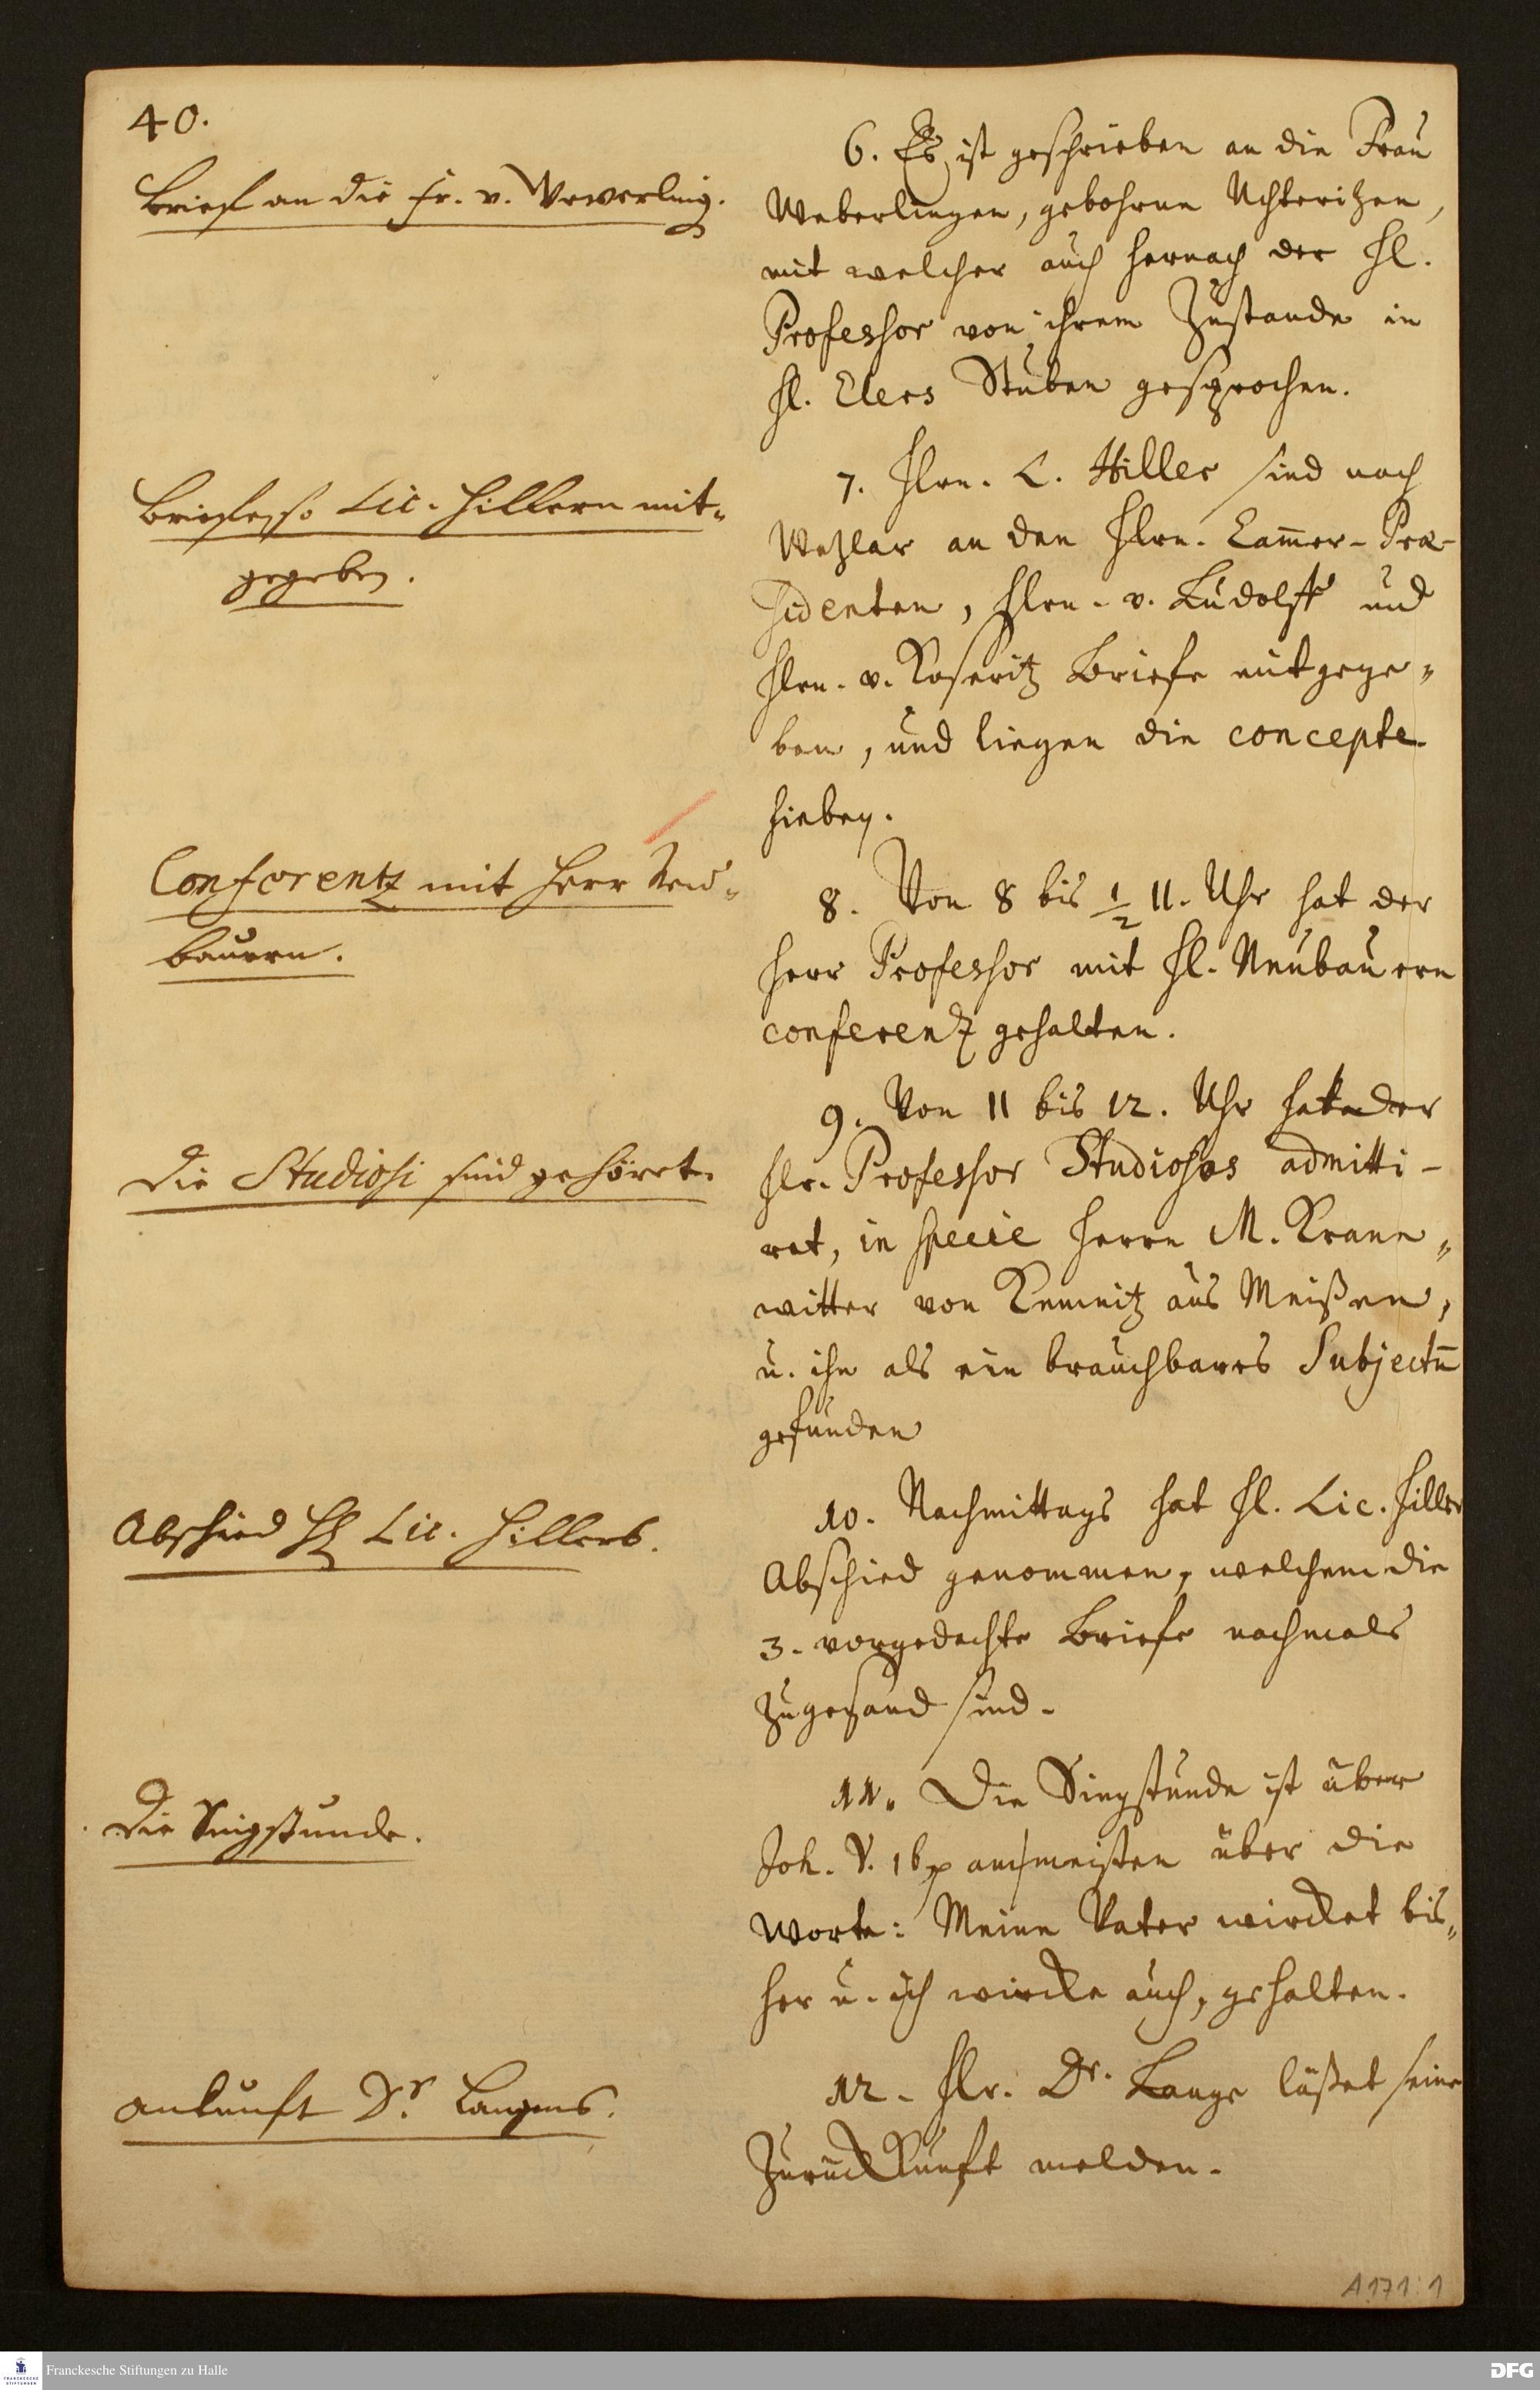 40.
Brief an die Fr. v. Weverling.
6. Es ist geschrieben an die Frau
Weberlingen, gebohrne Uchteritzen,
mit welcher auch hernach der Hl.
Professor von ihrem Zustande in
Hl. Elers Stuben gesprochen.
Briefe, so Lic. Hillern mit-
gegeben.
7. Hlrn. L. Hiller sind nach
Wezlar an den Hlrn. Cam̄er-Præ-
sidenten, Hlrn. v. Ludolff und
Hlrn. v. Koseritz Briefe mitgege-
ben, und liegen die concepte
hiebey.
Conferentz mit Herr Neu-
bauern.
8. Von 8 bis 1/2 11. Uhr hat der
Herr Professor mit Hl. Neubauern
conferentz gehalten.
Die Studiosi sind gehöret.
9. Von 11 bis 12. Uhr hat der
Hlr. Professor Studiosos admitti-
ret, in specie Herrn M. Krann-
witter von Kemnitz aus Meißen,
u. ihn als ein brauchbares Subjectū
gefunden
Abschied Lic. Hillers.
10. Nachmittags hat Hl. Lic. Hiller
Abschied genommen, welchem die
3. vorgedachte Briefe nachmals
zugesand sind.
Die Singstunde.
11. Die Singstunde ist über
Joh. V. 16 am meisten über die
Worte: Meine Vater wircket bis-
her u. ich wircke auch, gehalten.
Ankunft Dr. Langens.
12. Hlr. Dr. Lange läßet seine
Zurückkunft melden.
A 171:1
Franckesche Stiftungen zu Halle
FRANCKESCHE
STIFTUNGEN
DFG